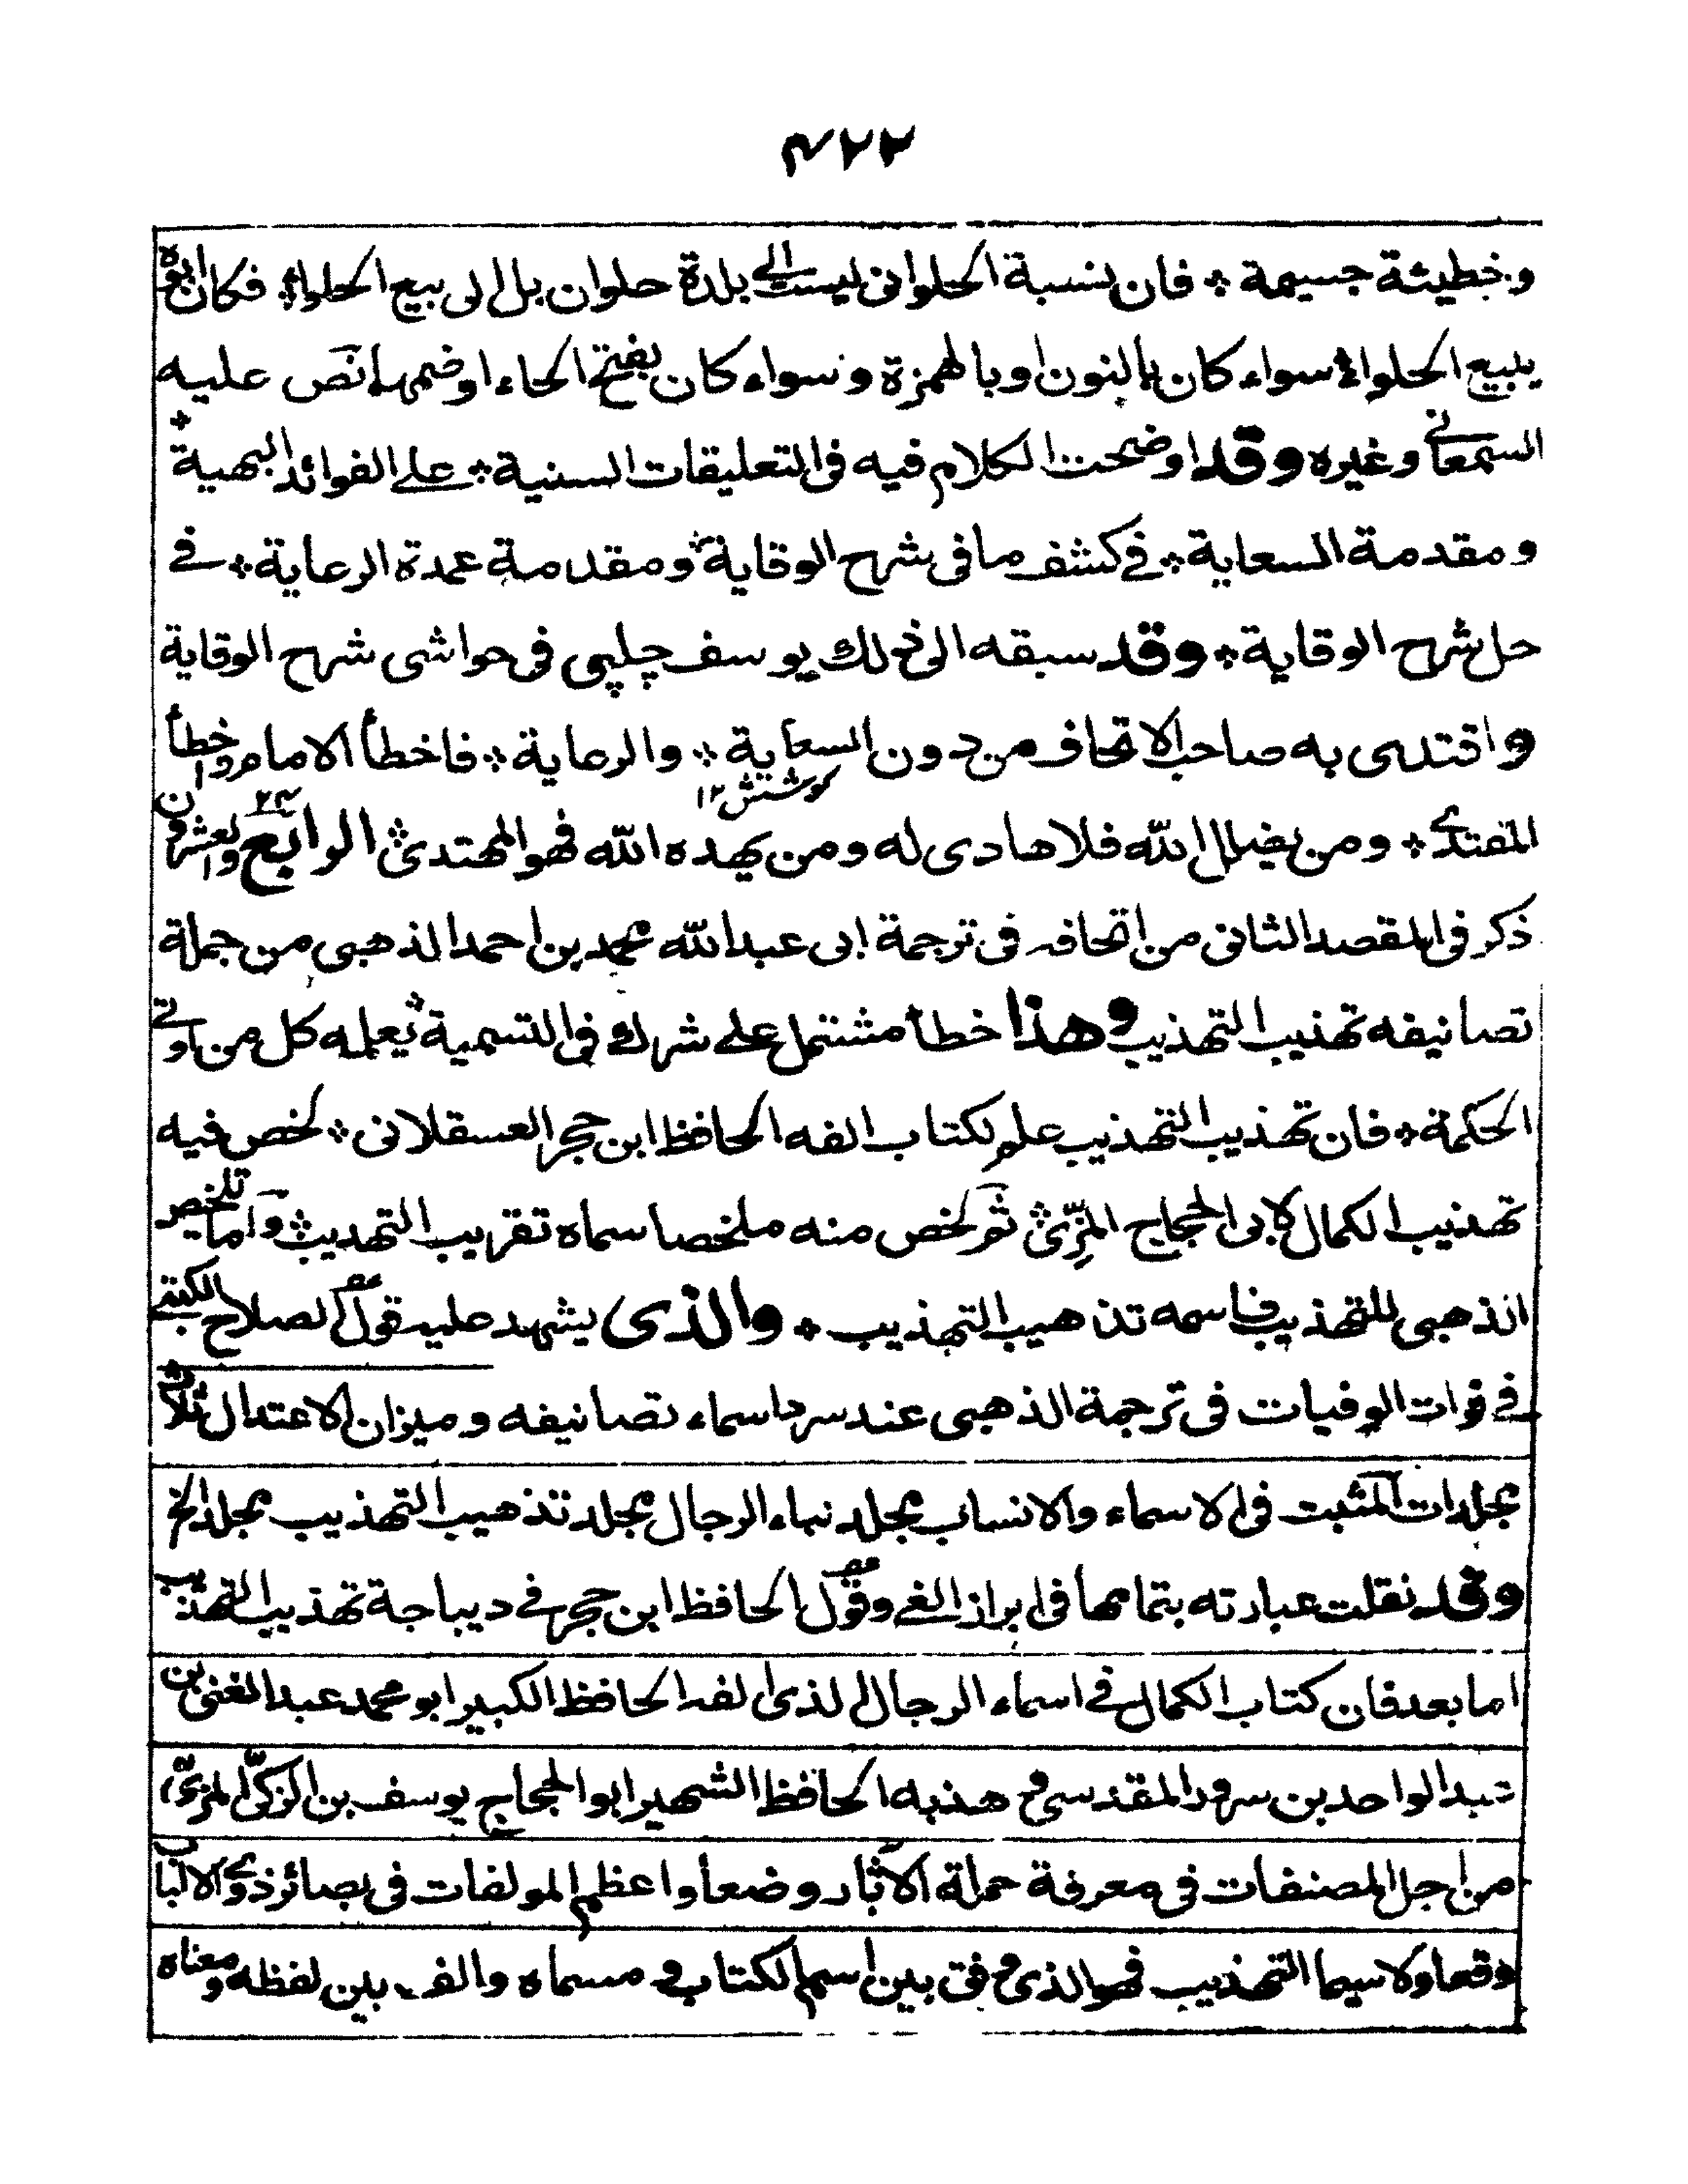 ٤٢٢
وخطيئة جسيمة ÷ فان نسبة الحلوانى ليست الى بلدة حلوان بل الى بيع الحلواء ÷ فكان ابوه
يبيع الحلواء سواء كان بالنون او بالهمزة وسواء كان بفتح الحاء او ضمها نص عليه
السمعانى وغيره وقد اوضحت الكلام فيه فى التعليقات السنية ÷ على الفوائد البهية ÷
ومقدمة السعاية ÷ فى كشف ما فى شرح الوقاية ÷ ومقدمة عمدة الرعاية ÷ فى
حل شرح الوقاية ÷ وقد سبقه الى ذلك يوسف چلپى فى حواشى شرح الوقاية
واقتدى به صاحب الاتحاف من دون السعاية ÷ والرعاية ÷ فاخطأ الامام وخطأ
كوشش ١٢
المقتدى ÷ ومن يضلل الله فلا هادى له ومن يهده الله فهو المهتدى ÷ الرابع والعشرون ٢٤
ذكر فى المقصد الثانى من اتحافه فى ترجمة ابى عبد الله محمد بن احمد الذهبى من جملة
تصانيفه تهذيب التهذيب وهذا خطأ مشتمل على شرك فى التسمية يعلمه كل من اوتى
الحكمة ÷ فان تهذيب التهذيب علم لكتاب الفه الحافظ ابن حجر العسقلانى ÷ لخص فيه
تهذيب الكمال لابى الحجاج المزّى ÷ ثم لخص منه ملخصا سماه تقريب التهذيب ÷ واما تلخيص
الذهبى للتهذيب فاسمه تذهيب التهذيب ÷ والذى يشهد عليه قول الصلاح الكتبى
فى فوات الوفيات فى ترجمة الذهبى عند سرد اسماء تصانيفه وميزان الاعتدال ثلاث
مجلدات المشبت فى الاسماء والانساب مجلد نباء الرجال مجلد تذهيب التهذيب مجلد الخ
وقد نقلت عبارته بتمامها فى ابراز الغى وقول الحافظ ابن حجر فى ديباجة تهذيب التهذيب
اما بعد فان كتاب الكمال فى اسماء الرجال الذى الفه الحافظ الكبير ابو محمد عبد الغنى بن
عبد الواحد بن سرور المقدسى وهذبه الحافظ الشهير ابو الحجاج يوسف بن الزكى المزىّ
من اجل المصنفات فى معرفة حملة الآثار وضعا واعظم المولفات فى بصائر ذوى الالباب
وقعا ولا سيما التهذيب فهو الذى وفق بين اسم الكتاب ومسماه والف بين لفظه ومعناه